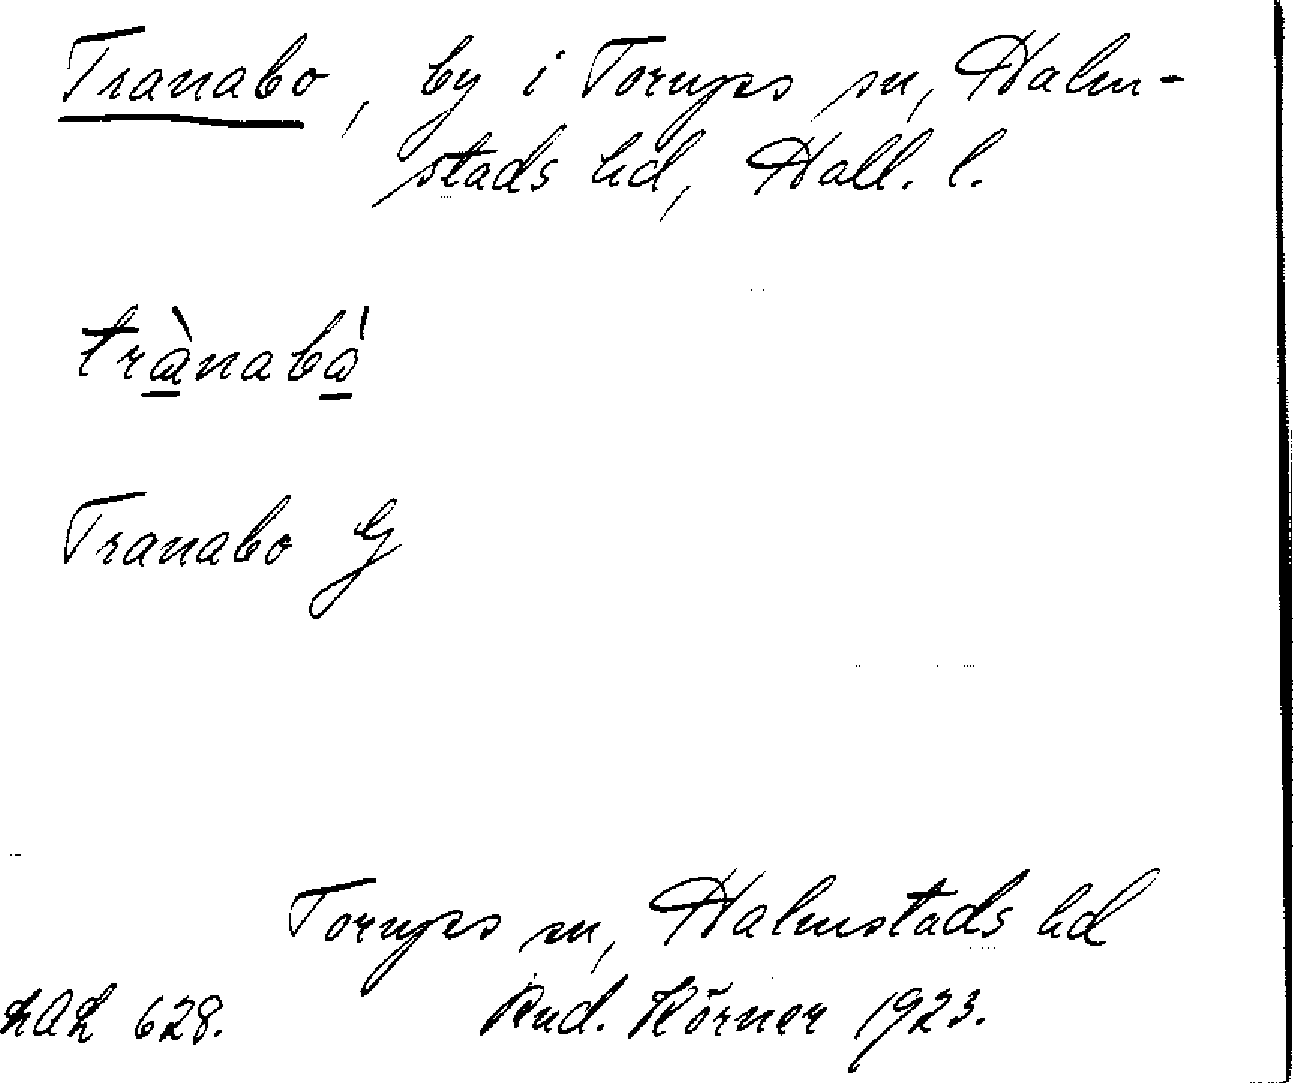 Tranabo, by i Torups sn, Halm-
stads hd, Hall. l.
trànabó
Tranabo G
Torups sn, Halmstads hd
LAL 628. Rud. Körner 1923.